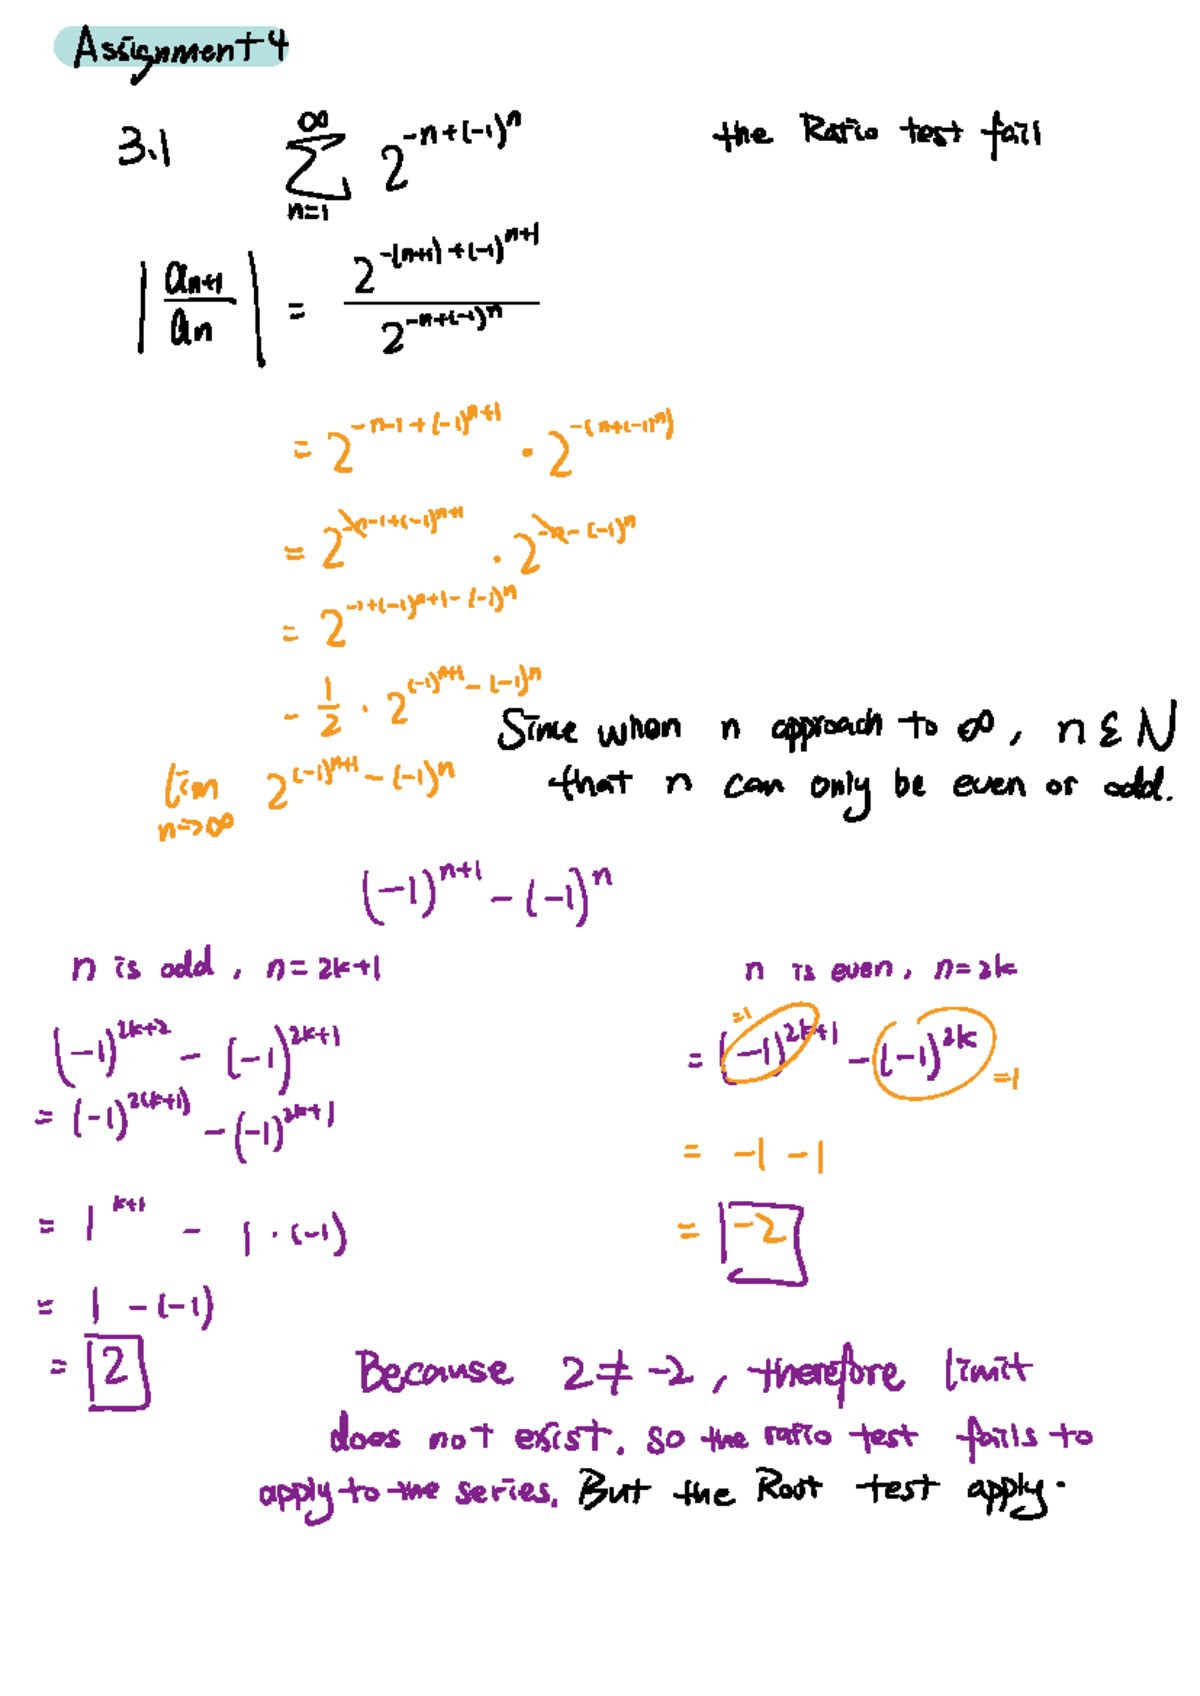 Assignment 4
3.1 ∞∑n=1 2^{-n+(-1)^n} the Ratio test fail
|a_{n+1}/a_n| = 2^{-(n+1)+(-1)^{n+1}} / 2^{-n+(-1)^n}
= 2^{-n-1+(-1)^{n+1}} · 2^{-(n+(-1)^n)}
= 2^{-n-1+(-1)^{n+1}} · 2^{-n-(-1)^n}
= 2^{-1+(-1)^{n+1}-(-1)^n}
- 1/2 · 2^{(-1)^{n+1}-(-1)^n}
Since when n approach to ∞, n ε N
lim n->∞ 2^{(-1)^{n+1}-(-1)^n} that n can only be even or odd.
(-1)^{n+1} - (-1)^n
n is odd, n=2k+1
(-1)^{2k+2} - (-1)^{2k+1}
= (-1)^{2(k+1)} - (-1)^{2k+1}
= 1^{k+1} - 1·(-1)
= 1 - (-1)
= 2
n is even, n=2k
=1
= (-1)^{2k+1} - (-1)^{2k} =1
= -1 - 1
= -2
Because 2 ≠ -2, therefore limit
does not exist. so the ratio test fails to
apply to the series. But the Root test apply.